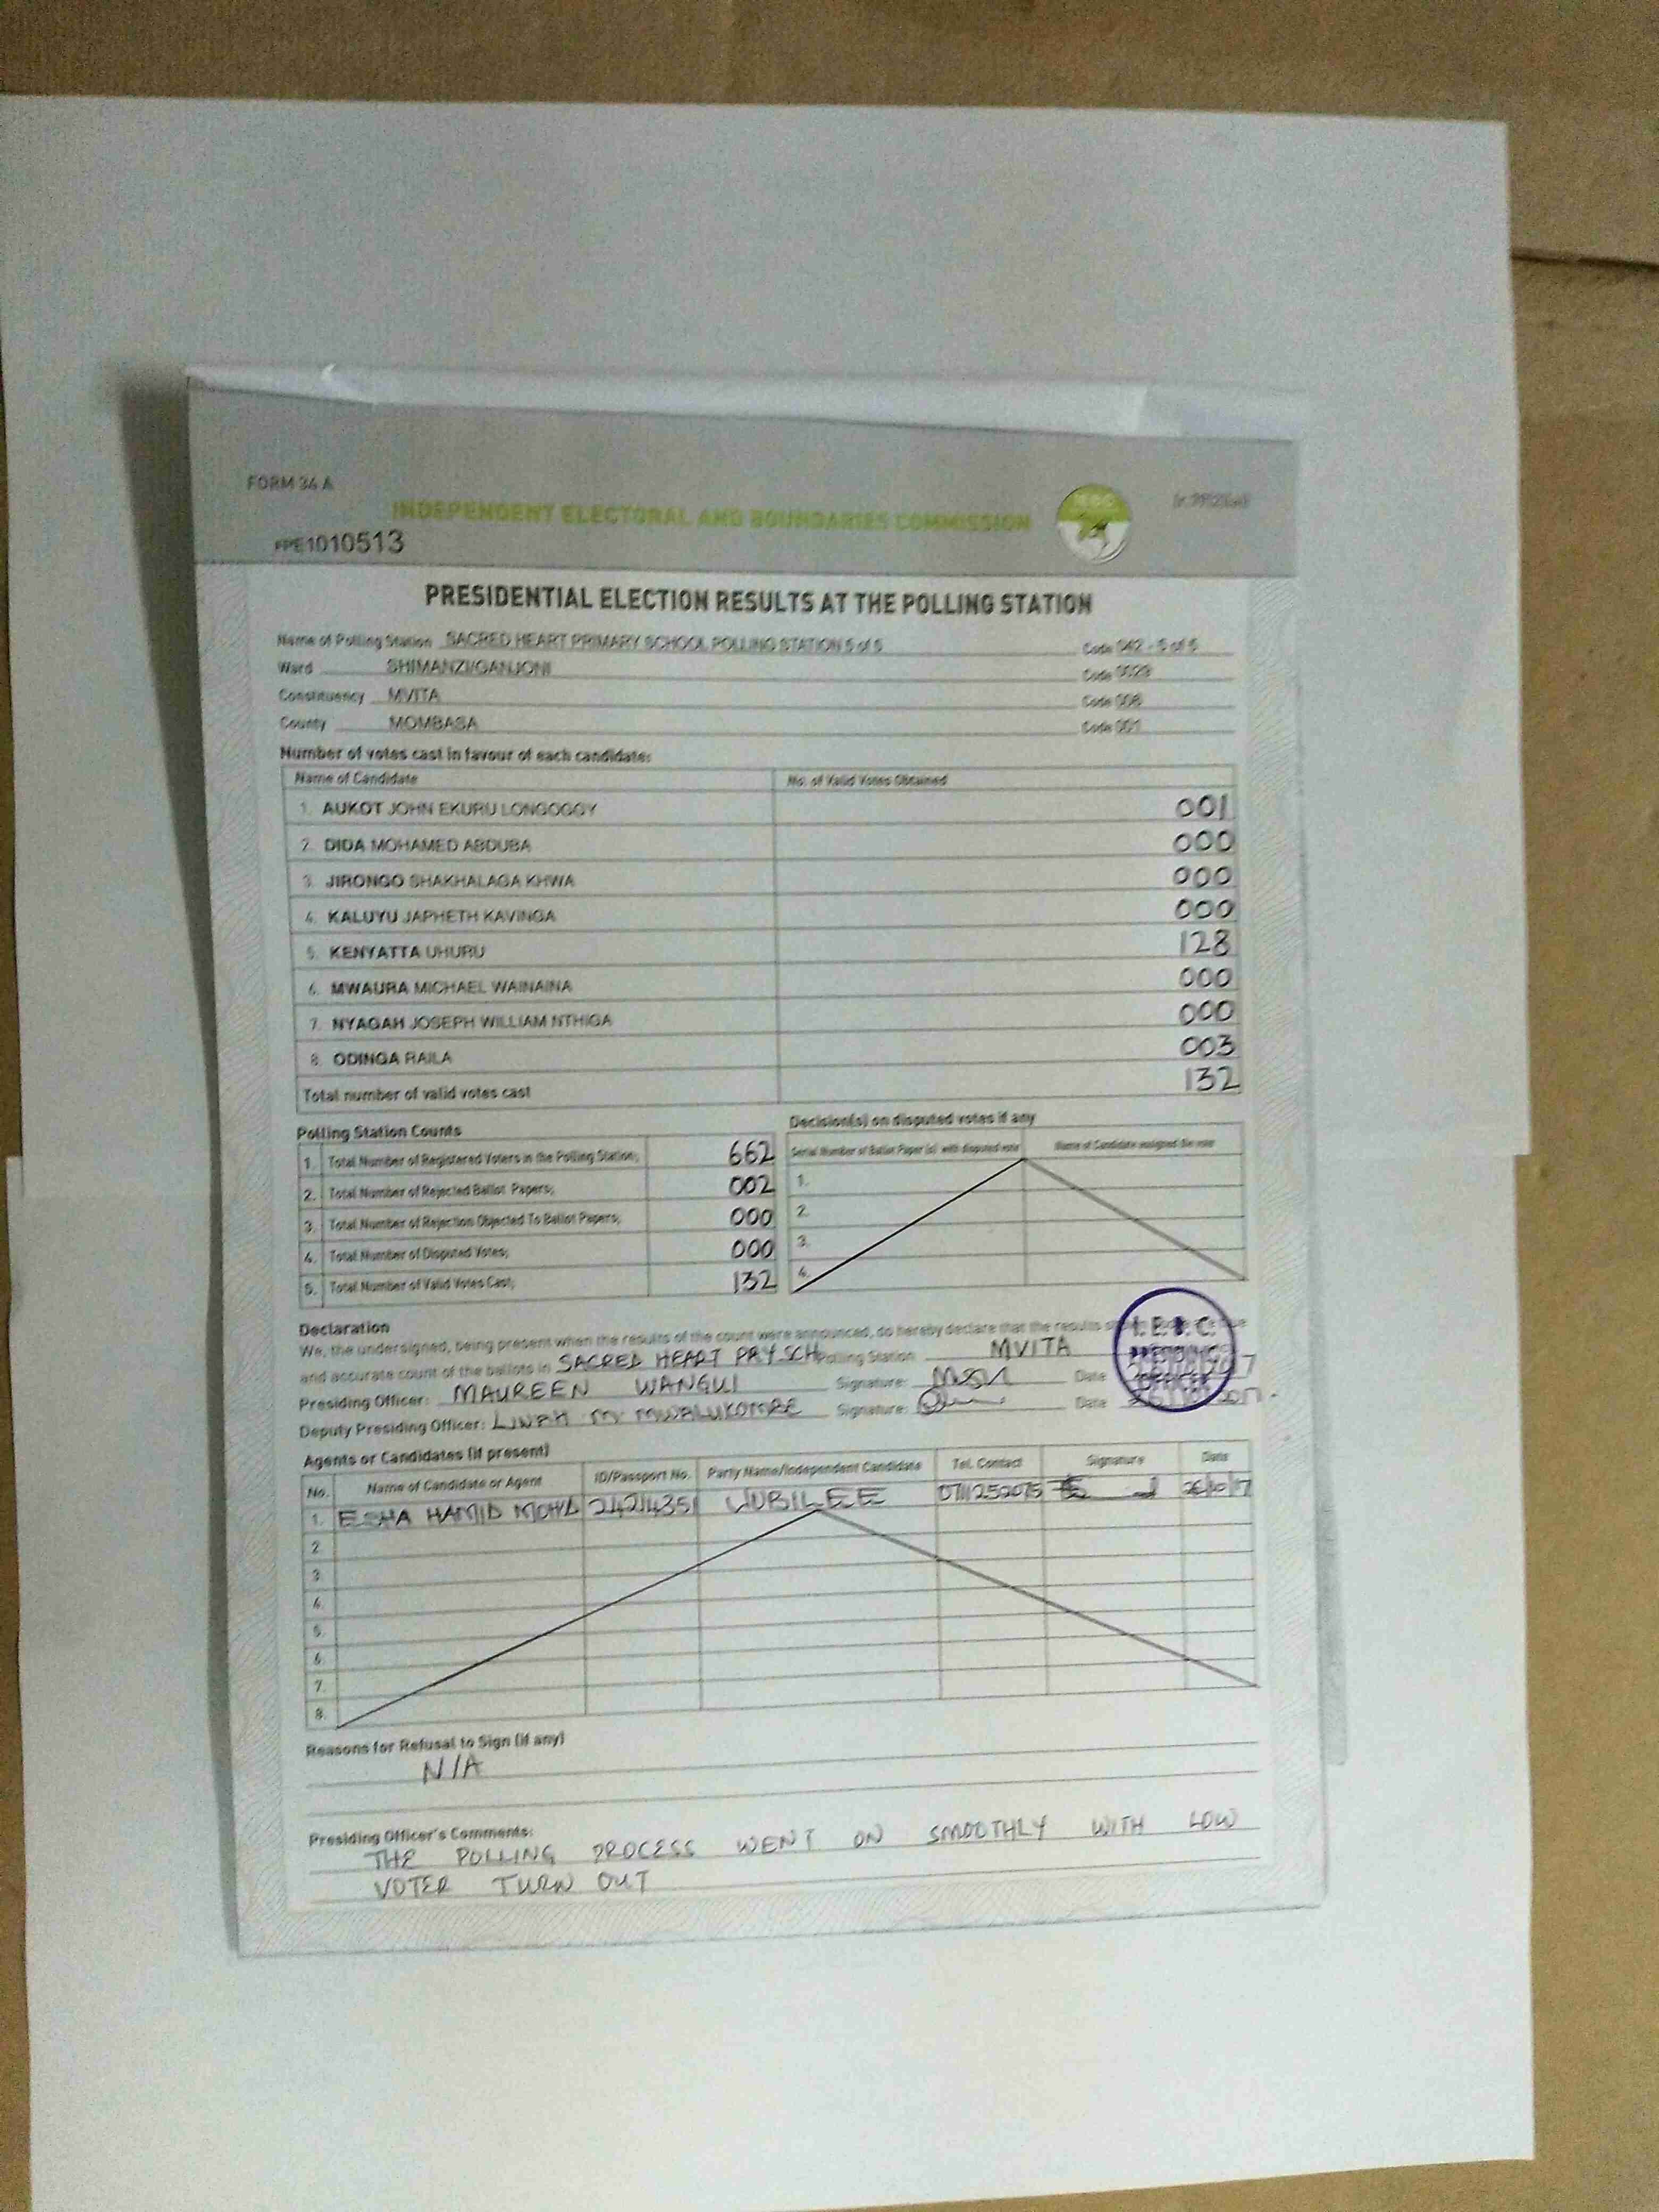 FORM 34 A
INDEPENDENT ELECTORAL AND BOUNDARIES COMMISSION
FPE1010513
PRESIDENTIAL ELECTION RESULTS AT THE POLLING STATION
Name of Polling Station SACRED HEART PRIMARY SCHOOL POLLING STATION 5 of 5 Code 042 - 5 of 5
Ward SHIMANZI/GANJONI Code 0029
Constituency MVITA Code 006
County MOMBASA Code 001
Number of votes cast in favour of each candidate:
Name of Candidate No. of Valid Votes Obtained
1. AUKOT JOHN EKURU LONGOGGY 001
2. DIDA MOHAMED ABDUBA 000
3. JIRONGO SHAKHALAGA KHWA 000
4. KALUYU JAPHETH KAVINGA 000
5. KENYATTA UHURU 128
6. MWAURA MICHAEL WAINAINA 000
7. NYAGAH JOSEPH WILLIAM NTHIGA 000
8. ODINGA RAILA 003
Total number of valid votes cast 132
Polling Station Counts
1. Total Number of Registered Voters in the Polling Station; 662
2. Total Number of Rejected Ballot Papers; 002
3. Total Number of Rejection Objected To Ballot Papers; 000
4. Total Number of Disputed Votes; 000
5. Total Number of Valid Votes Cast; 132
Decision(s) on disputed votes if any
Serial Number of Ballot Paper (s) with disputed vote Name of Candidate assigned the vote
1.
2.
3.
4.
Declaration
We, the undersigned, being present when the results of the count were announced, do hereby declare that the results
and accurate count of the ballots in SACRED HEART PRY SCH Polling Station MVITA
Presiding Officer: MAUREEN WANGUI Signature: Date
Deputy Presiding Officer: LINAH M. MWALUKOMBE Signature: Date
I.E.B.C.
PRESIDING
OFFICER
Agents or Candidates (if present)
No. Name of Candidate or Agent ID/Passport No. Party Name/Independent Candidate Tel. Contact Signature Date
1. ESHA HAMID MOHD 24214351 JUBILEE 0711252075 26/10/17
2.
3.
4.
5.
6.
7.
8.
Reasons for Refusal to Sign (if any)
N/A
Presiding Officer's Comments:
THE POLLING PROCESS WENT ON SMOOTHLY WITH LOW
VOTER TURN OUT